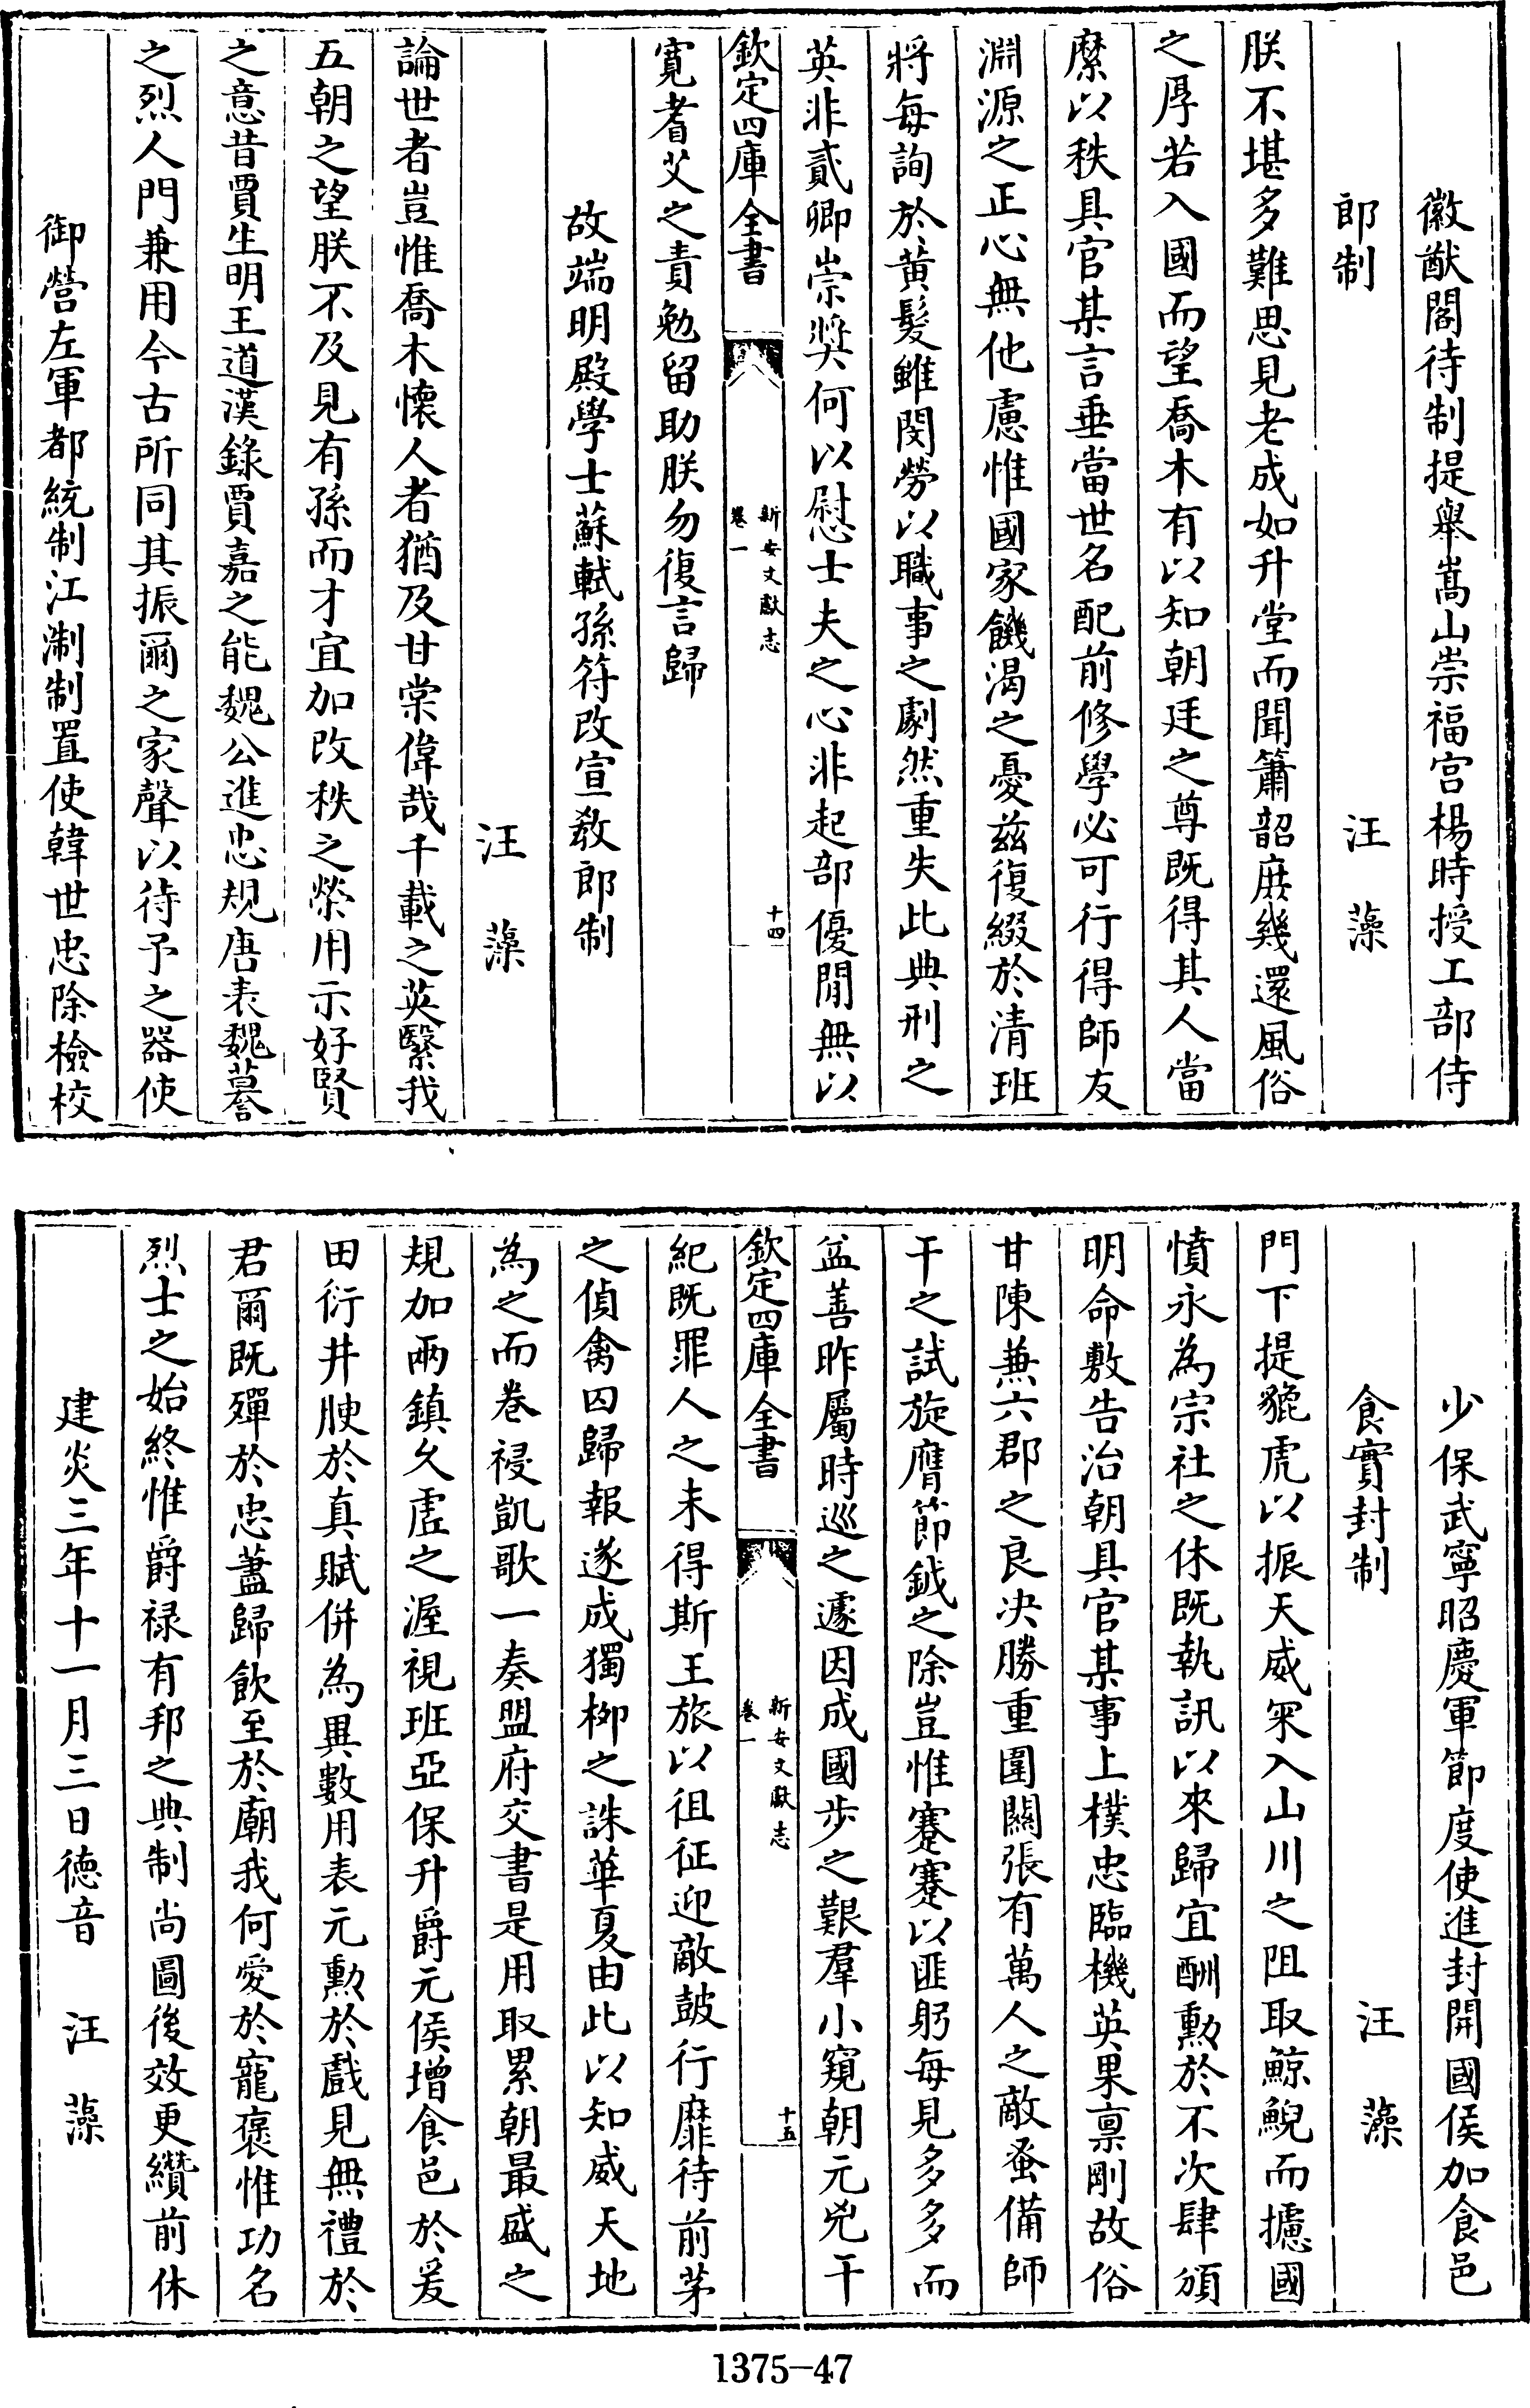 徽猷閣待制提舉嵩山崇福宫楊時授工部侍
郎制　汪　藻
朕不堪多難思見老成如升堂而聞簫韶庻幾還風俗
之厚若入國而望喬木有以知朝廷之尊既得其人當
縻以秩具官某言垂當世名配前修學必可行得師友
淵源之正心無他慮惟國家饑渴之憂兹復綴於清班
將每詢於黄髮雖閔勞以職事之劇然重失此典刑之
英非貳卿崇奬何以慰士夫之心非起部優閒無以
欽定四庫全書　新安文獻志　卷一　十四
寛耆艾之責勉留助朕勿復言歸
故端明殿學士蘇軾孫符改宣教郎制
汪　藻
論世者豈惟喬木懷人者猶及甘棠偉哉千載之英繄我
五朝之望朕不及見有孫而才宜加改秩之榮用示好賢
之意昔賈生明王道漢錄賈嘉之能魏公進忠規唐表魏謩
之烈人門兼用今古所同其振爾之家聲以待予之器使
御營左軍都統制江淛制置使韓世忠除檢校
少保武寧昭慶軍節度使進封開國侯加食邑
食實封制　汪　藻
門下提貔虎以振天威罙入山川之阻取鯨鯢而攄國
憤永為宗社之休既執訊以來歸宜酬勲於不次肆頒
明命敷告治朝具官某事上樸忠臨機英果禀剛故俗
甘陳兼六郡之良决勝重圍關張有萬人之敵蚤備師
干之試旋膺節鉞之除豈惟蹇蹇以匪躬每見多多而
益善昨屬時巡之遽因成國步之艱羣小窺朝元兇干
欽定四庫全書　新安文獻志　卷一　十五
紀既罪人之未得斯王旅以徂征迎敵皷行靡待前茅
之偵禽囚歸報遂成獨柳之誅華夏由此以知威天地
為之而卷祲凱歌一奏盟府交書是用取累朝最盛之
規加兩鎮久虛之渥視班亞保升爵元侯增食邑於爰
田衍井腴於真賦併為異數用表元勲於戲見無禮於
君爾既殫於忠藎歸飲至於廟我何愛於寵褒惟功名
烈士之始終惟爵禄有邦之典制尚圖後效更纘前休
建炎三年十一月三日德音　汪　藻
1375-47